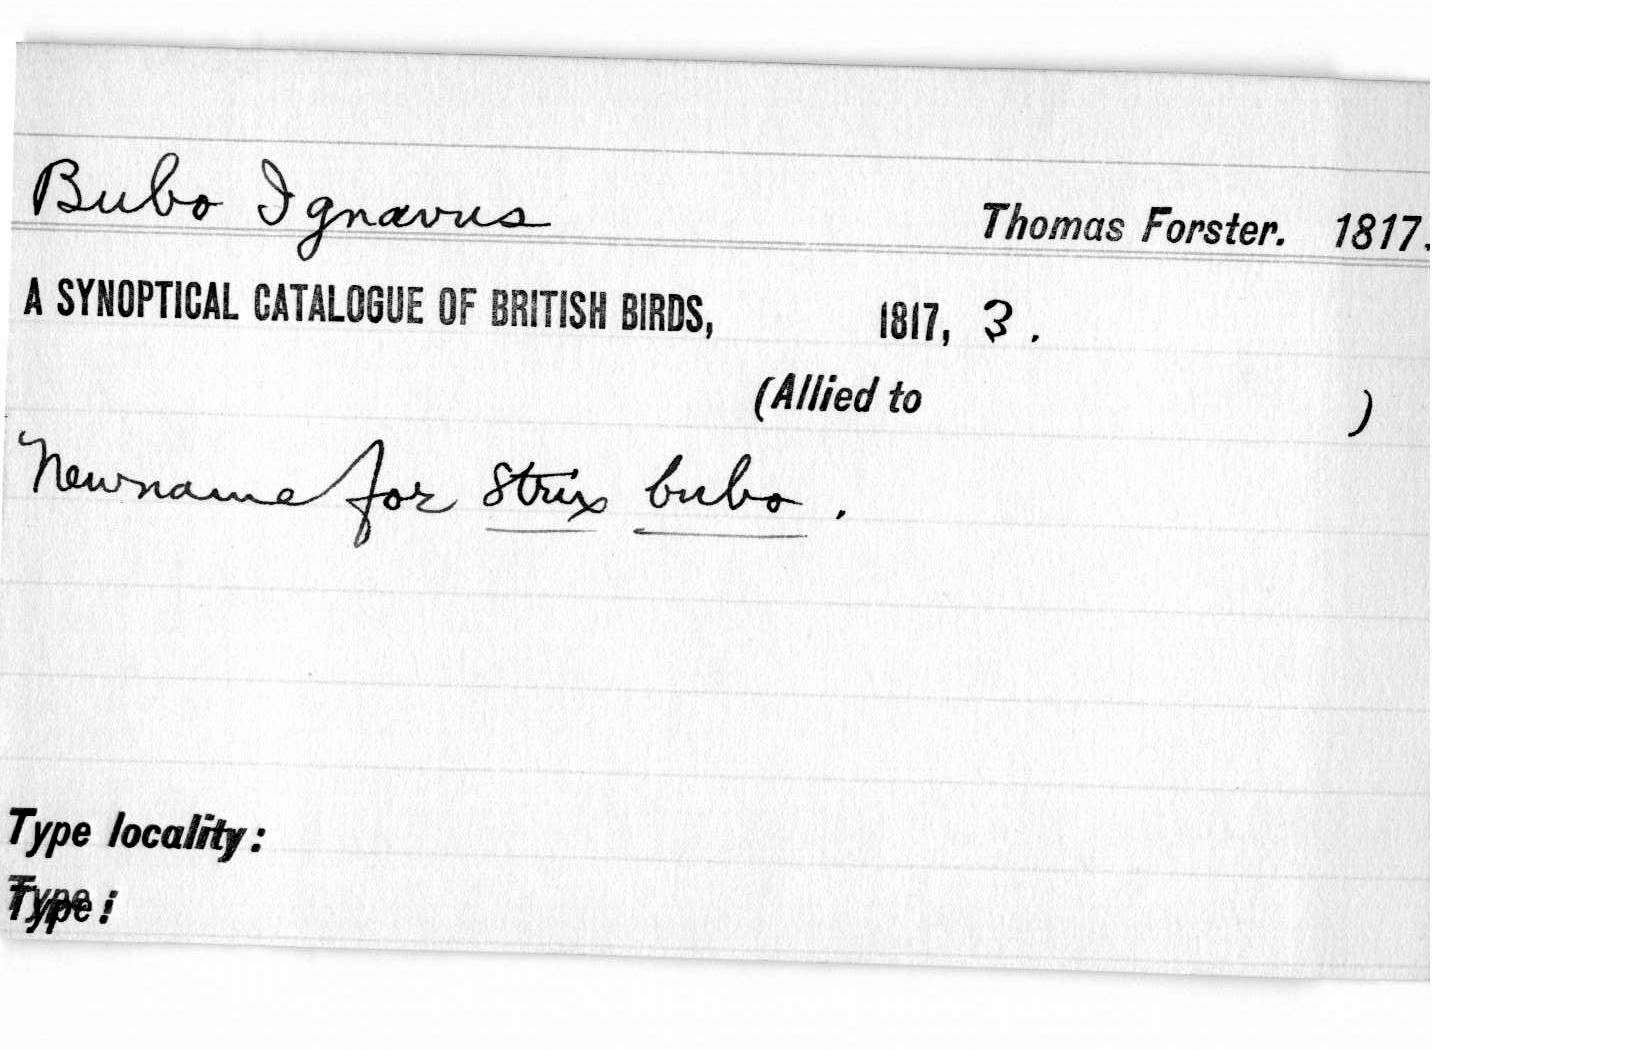 Bubo Ignavus Thomas Forster. 1817.
A SYNOPTICAL CATALOGUE OF BRITISH BIRDS, 1817, 3.
(Allied to )
New name for Strix bubo.
Type locality:
Type: